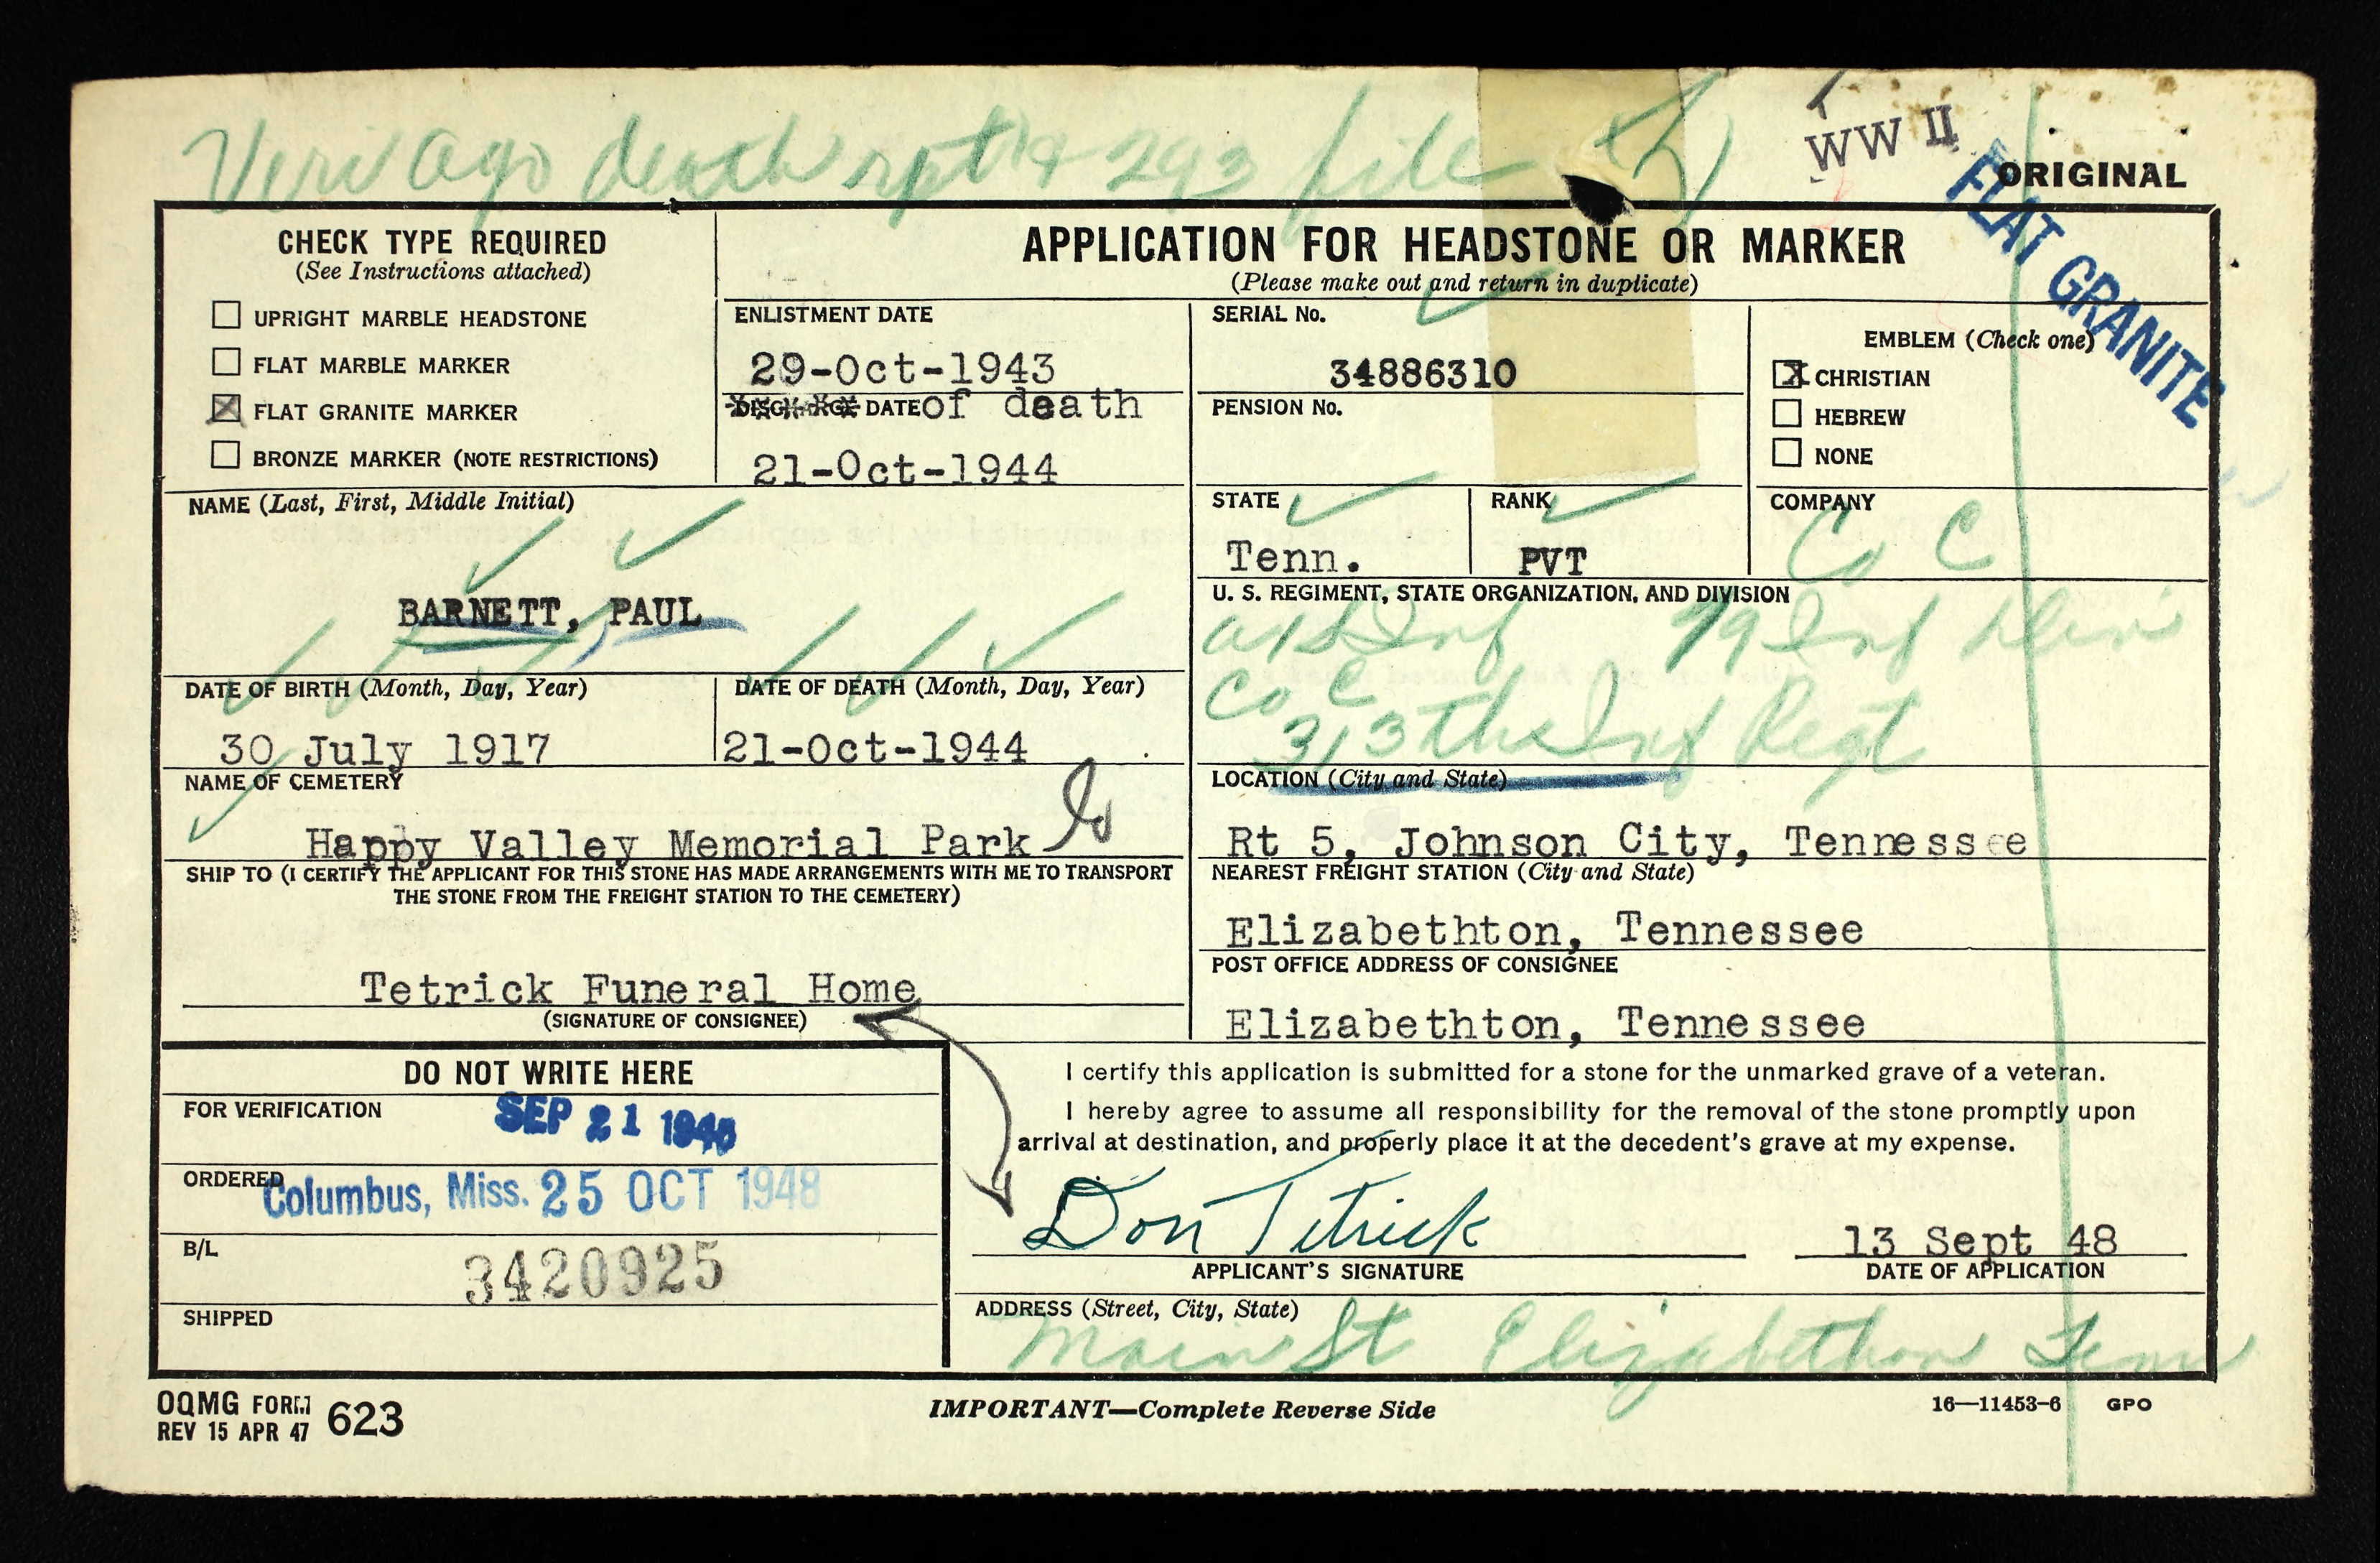 Veri Ago death rpt & 293 file
WW II
ORIGINAL
FLAT GRANITE
CHECK TYPE REQUIRED
(See Instructions attached)
☐ UPRIGHT MARBLE HEADSTONE
☐ FLAT MARBLE MARKER
☒ FLAT GRANITE MARKER
☐ BRONZE MARKER (NOTE RESTRICTIONS)
APPLICATION FOR HEADSTONE OR MARKER
(Please make out and return in duplicate)
ENLISTMENT DATE
29-Oct-1943
DISCHARGE DATE of death
21-Oct-1944
SERIAL No.
34886310
PENSION No.
EMBLEM (Check one)
☒ CHRISTIAN
☐ HEBREW
☐ NONE
NAME (Last, First, Middle Initial)
BARNETT, PAUL
STATE
Tenn.
RANK
PVT
COMPANY
Co C
U. S. REGIMENT, STATE ORGANIZATION, AND DIVISION
Inf 79 Inf Div
Co C
313th Inf Regt
DATE OF BIRTH (Month, Day, Year)
30 July 1917
DATE OF DEATH (Month, Day, Year)
21-Oct-1944
NAME OF CEMETERY
Happy Valley Memorial Park
LOCATION (City and State)
Rt 5, Johnson City, Tennessee
SHIP TO (I CERTIFY THE APPLICANT FOR THIS STONE HAS MADE ARRANGEMENTS WITH ME TO TRANSPORT
THE STONE FROM THE FREIGHT STATION TO THE CEMETERY)
Tetrick Funeral Home
(SIGNATURE OF CONSIGNEE)
NEAREST FREIGHT STATION (City and State)
Elizabethton, Tennessee
POST OFFICE ADDRESS OF CONSIGNEE
Elizabethton, Tennessee
DO NOT WRITE HERE
FOR VERIFICATION
SEP 21 1948
ORDERED
Columbus, Miss. 25 OCT 1948
B/L
3420925
SHIPPED
I certify this application is submitted for a stone for the unmarked grave of a veteran.
I hereby agree to assume all responsibility for the removal of the stone promptly upon
arrival at destination, and properly place it at the decedent's grave at my expense.
Don Tetrick
APPLICANT'S SIGNATURE
13 Sept 48
DATE OF APPLICATION
ADDRESS (Street, City, State)
Main St Elizabethton Tenn
OQMG FORM 623
REV 15 APR 47
IMPORTANT—Complete Reverse Side
16—11453-6 GPO